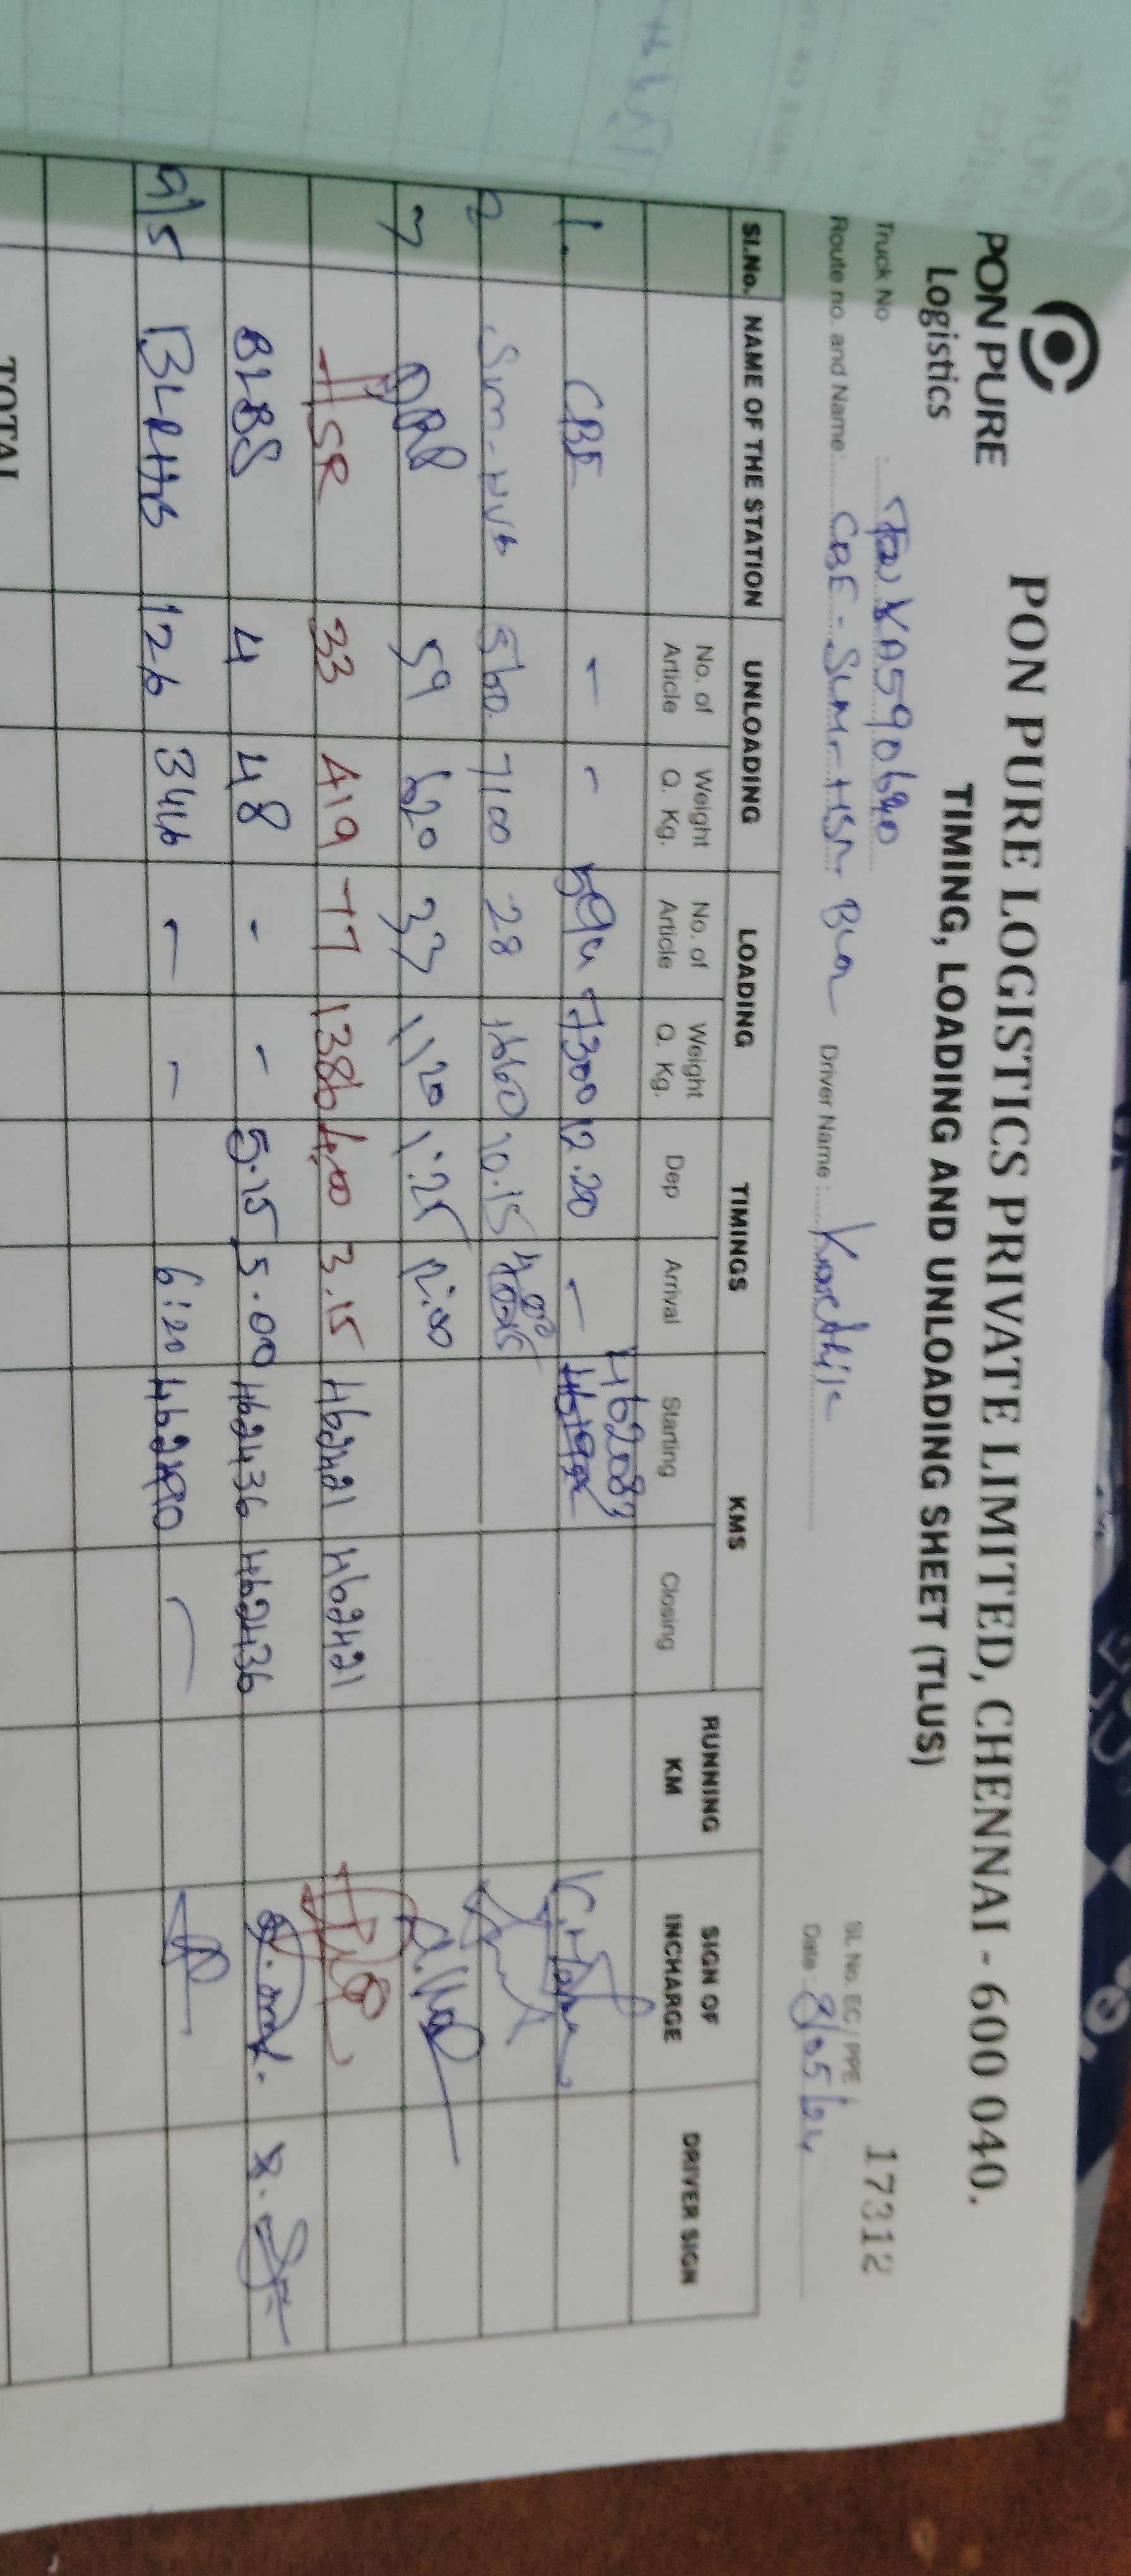 PON PURE
Logistics
PON PURE LOGISTICS PRIVATE LIMITED, CHENNAI - 600 040.
TIMING, LOADING AND UNLOADING SHEET (TLUS)
17312
Truck No : KA590690
SL. No. EC / PPE /
Route no. and Name: CBE - SLM - HSR - BLR Driver Name : Date : 8/05/24
Sl.No. NAME OF THE STATION UNLOADING LOADING TIMINGS KMS RUNNING KM SIGN OF INCHARGE DRIVER SIGN
No. of Article Weight Q. Kg. No. of Article Weight Q. Kg. Dep Arrival Starting Closing
1. CBE - - 594 7300 12.20 - 462083
2 SLM-HUB 560 7100 28 1660 10.15
3 59 620 33 1120 1.25 12.00
HSR 33 419 77 1386 4.00 3.15 462421 462421
BLBS 4 48 - - 5.15 5.00 462436 462436
9/5 BLRHB 126 3446 - - 6:20 462490 -
TOTAL